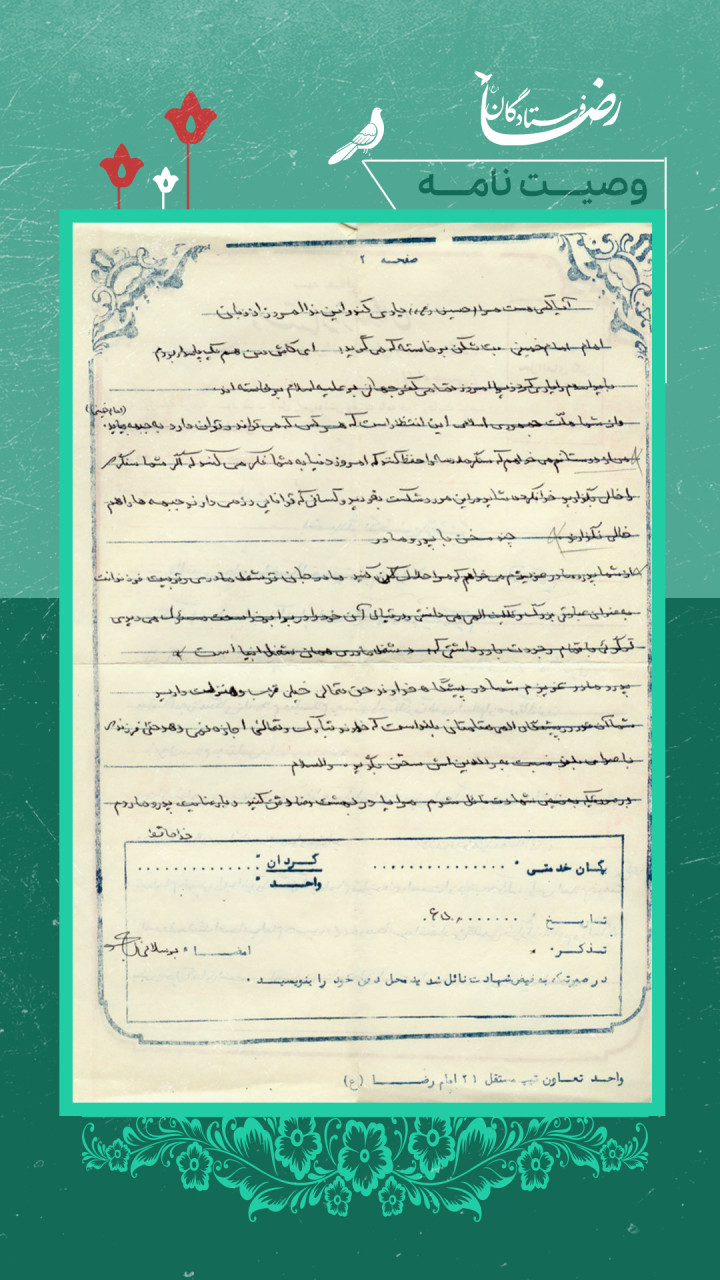 فرستادگان رضا
وصیت نامه
صفحه ۲
آیا کسی هست مرا (حسین) یاری کند و این ندا امروز از زبان
امام امام خمینی بت شکن برخاسته که می گوید: ای کاش من هم یک پاسدار بودم
باید اسلام را یاری کرد زیرا امروز تمامی کفر جهانی بر علیه اسلام برخاسته اند.
و از شما ملت جمهوری اسلامی این انتظار است که هر کس که می تواند و توان دارد به جبهه بیاید. (امام خمینی)
من از دوستانم می خواهم که سنگر مدرسه را حفظ کنند که امروز دنیا به شما فکر می کنند که اگر شما سنگر
را خالی بگذارید خدا نکرده شاید در این مورد شکست بخورید و کسانی که توانایی رزمی دارند جبهه ها را هم
خالی نگذارند چند سخن با پدر و مادر
از شما پدر و مادر عزیزم می خواهم که مرا حلال کنید مادر جان تو شغل مادری و تربیت فرزندانت
به عنوان عبادتی بزرگ و تکلیف الهی می دانستی و در قبال آن خود را در برابر خدا سخت مسئول می دیدی
تو گوئی با تمام وجودت باور داشتی که شغل مادری همان شغل انبیا است
پدر و مادر عزیزم شما در پیشگاه خداوند حق تعالی خیلی قرب و منزلت دارید
شما که در پیشگاه الهی مقامتان بلند است که خداوند تبارک و تعالی اجازه نمی دهد حتی فرزندی
با صدای بلند نسبت به والدین اش سخن بگوید. والسلام
در صورتیکه به فیض شهادت نائل شوم مرا در بهشت رضا دفن کنید دیار عنایت پدر و مادرم
خداحافظ
یگان خدمتی : گردان :
واحد :
تاریخ :
تذکر : امضاء :
در صورتیکه به فیض شهادت نائل شدید محل دفن خود را بنویسید .
واحد تعاون تیپ مستقل ۲۱ امام رضا (ع)